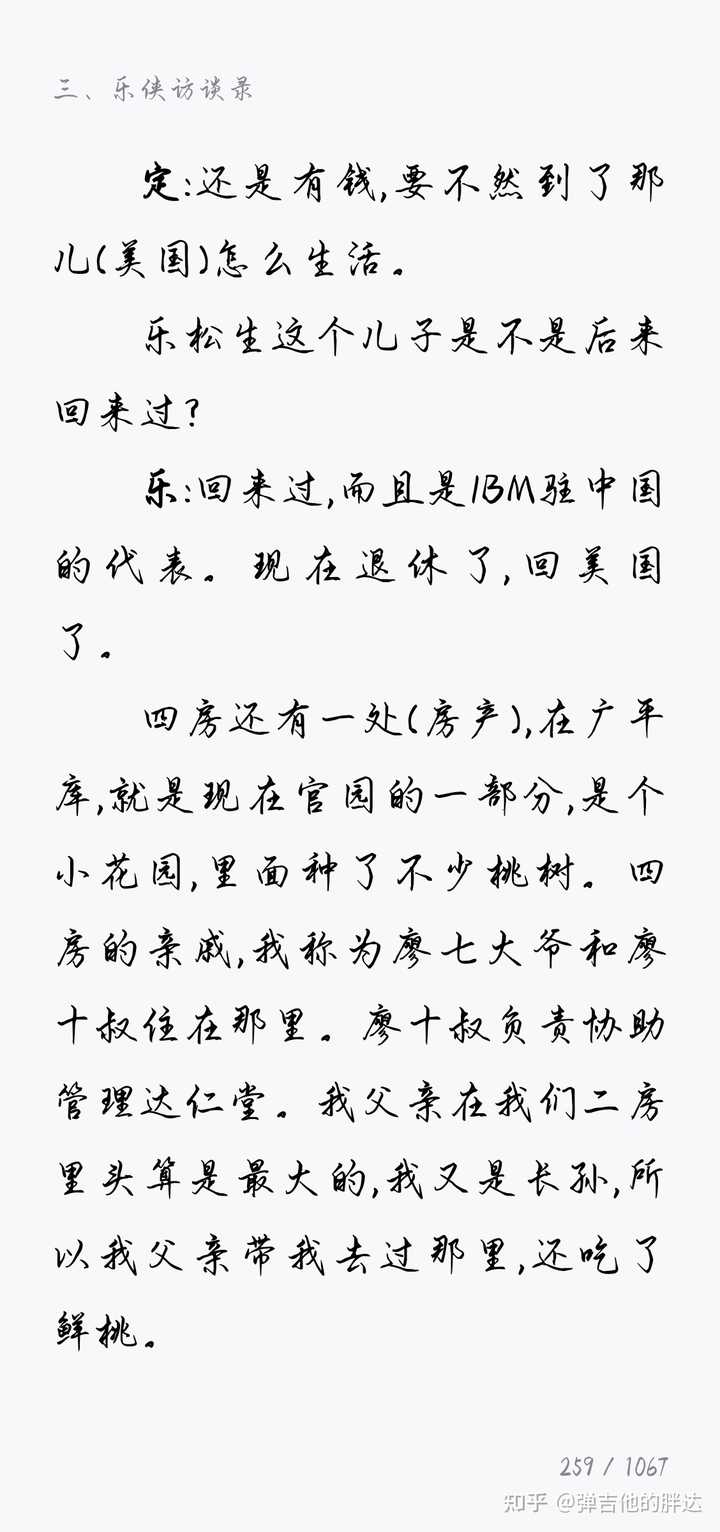 三、乐侠访谈录
定:还是有钱,要不然到了那
儿(美国)怎么生活。
乐松生这个儿子是不是后来
回来过?
乐:回来过,而且是IBM驻中国
的代表。现在退休了,回美国
了。
四房还有一处(房产),在广平
库,就是现在官园的一部分,是个
小花园,里面种了不少桃树。四
房的亲戚,我称为廖七大爷和廖
十叔住在那里。廖十叔负责协助
管理达仁堂。我父亲在我们二房
里头算是最大的,我又是长孙,所
以我父亲带我去过那里,还吃了
鲜桃。
259 / 1067
知乎 @弹吉他的胖达